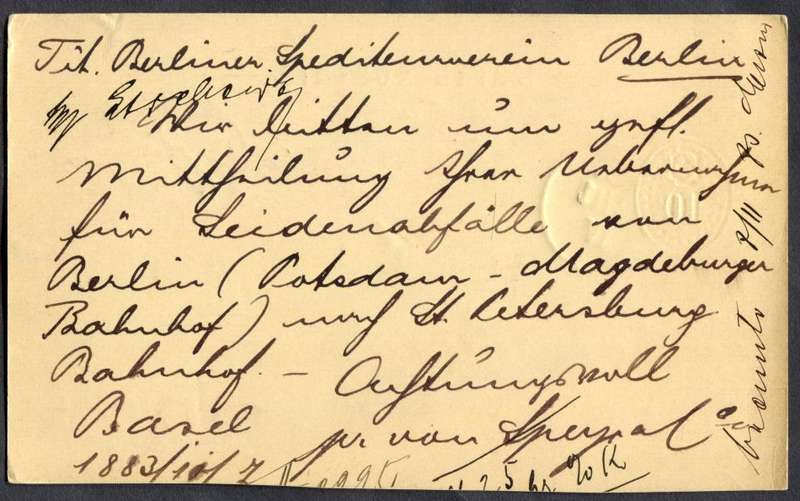 Tit. Berliner Spediteurverein Berlin
Wir bitten um gefl.
Mittheilung Ihrer Uebernahmen
für Seidenabfälle von
Berlin (Potsdam - Magdeburger
Bahnhof) nach St. Petersburg
Bahnhof. - Achtungsvoll
Basel pr. von Speyr & Co
1883/10/7
10